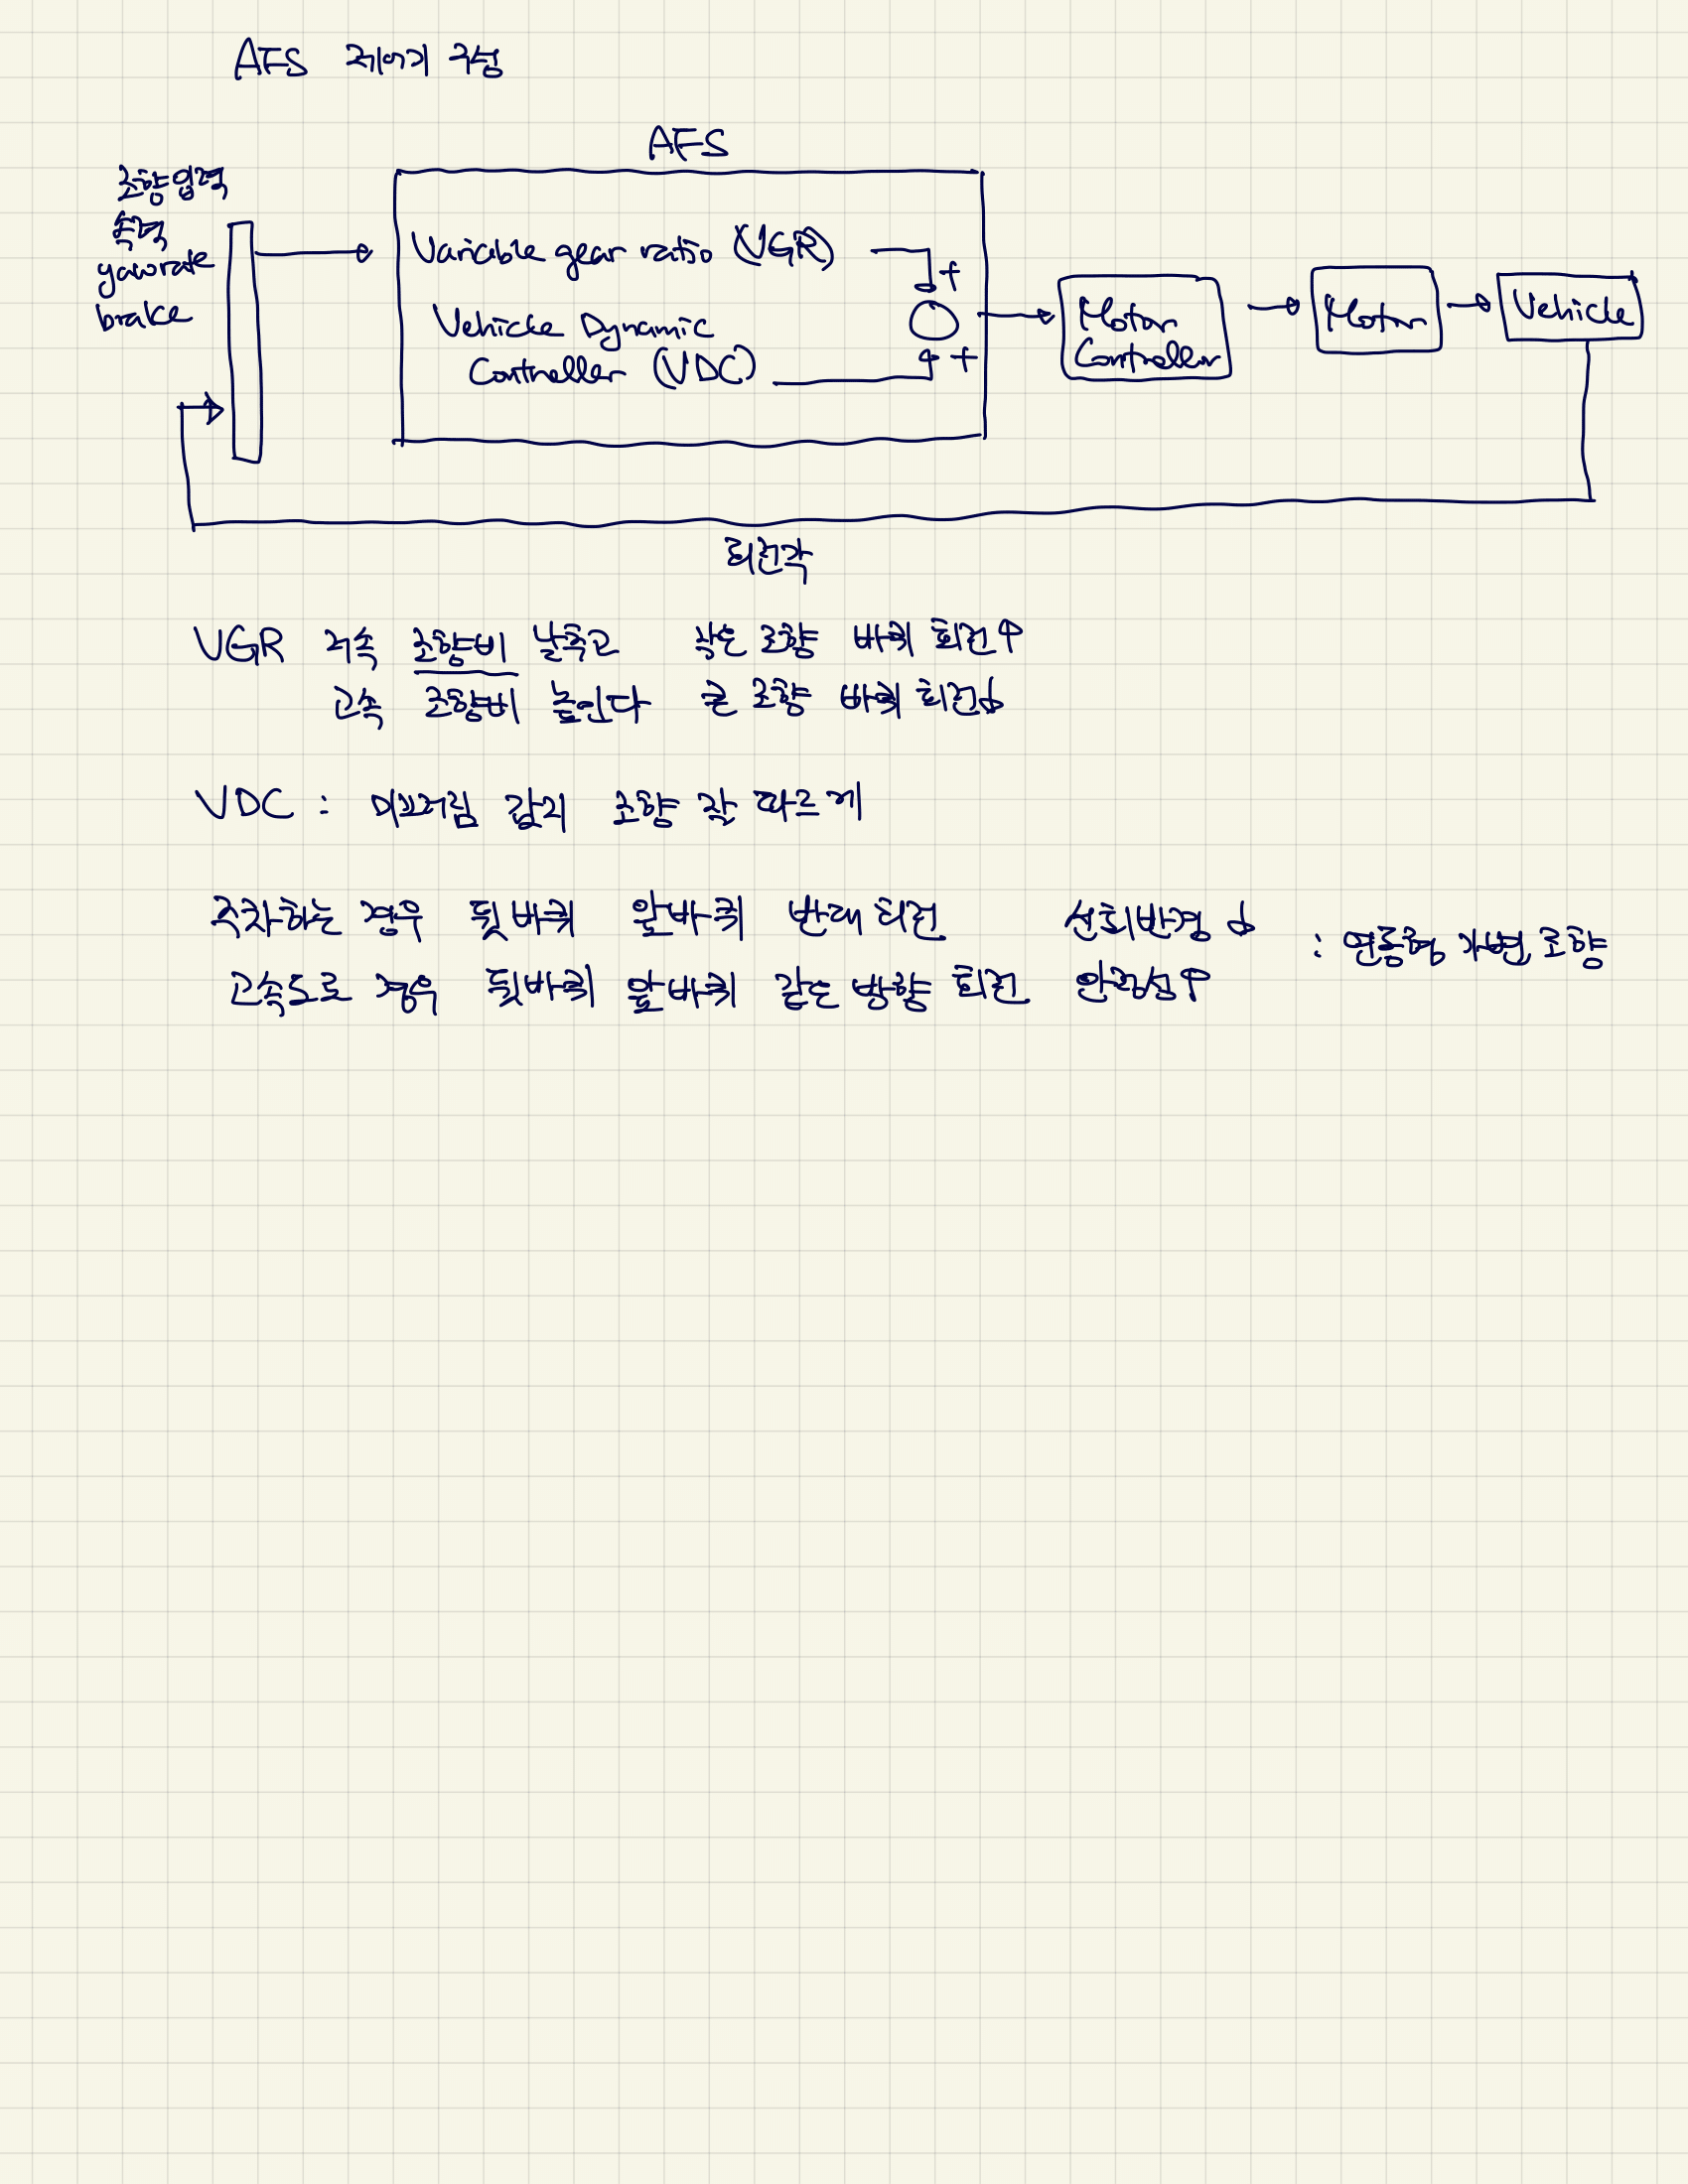 AFS 제어기 구성
AFS
조향입력
속력
yawrate
brake
Variable gear ratio (VGR)
+
Vehicle Dynamic
Controller (VDC)
+
Motor
Controller
Motor
Vehicle
회전각
VGR 저속 조향비 낮추고 작은 조향 바퀴 회전↑
고속 조향비 높인다 큰 조향 바퀴 회전↓
VDC : 미끄러짐 감지 조향 각 따르게
주차하는 경우 뒷바퀴 앞바퀴 반대 회전 선회반경 ↓ : 연동형 가변 조향
고속도로 경우 뒷바퀴 앞바퀴 같은 방향 회전 안정성↑